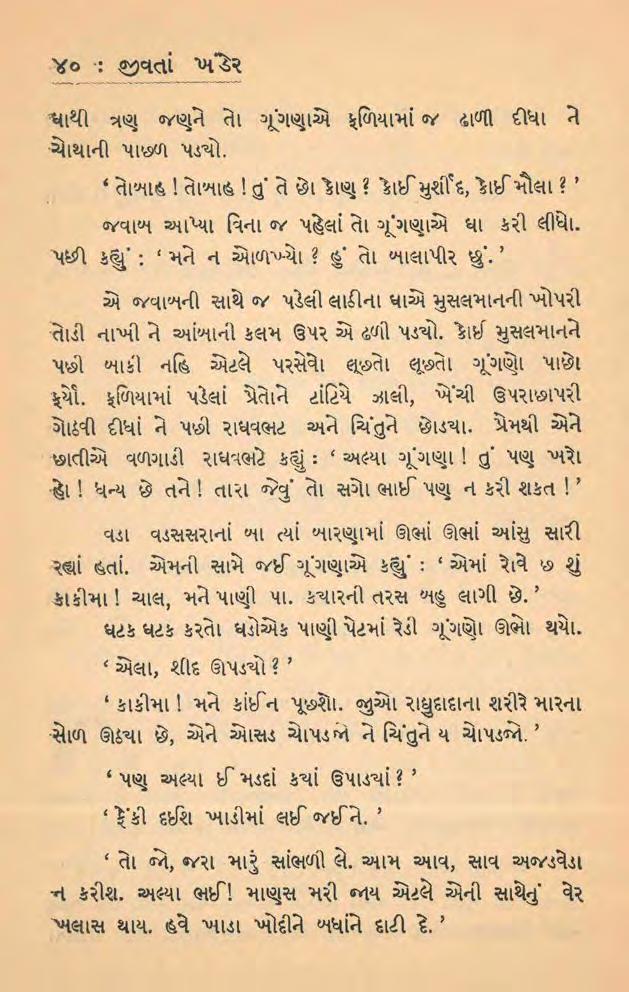 ૪૦ : જીવતાં ખંડેર
ઘાથી ત્રણ જણને તો ગૂંગણાએ ફળિયામાં જ ઢાળી દીધા ને
ચોથાની પાછળ પડ્યો.
‘ તોબાહ ! તોબાહ ! તું તે છો કોણ ? કોઈ મુર્શીદ, કોઈ મૌલા ? ’
જવાબ આપ્યા વિના જ પહેલાં તો ગૂંગણાએ ઘા કરી લીધો.
પછી કહ્યું : ‘ મને ન ઓળખ્યો ? હું તો બાલાપીર છું. ’
એ જવાબની સાથે જ પડેલી લાઠીના ઘાએ મુસલમાનની ખોપરી
તોડી નાખી ને આંબાની કલમ ઉપર એ ઢળી પડ્યો. કોઈ મુસલમાનને
પછી બાકી નહિ એટલે પરસેવો લૂછતો લૂછતો ગૂંગણો પાછો
ફર્યો. ફળિયામાં પડેલાં પ્રેતોને ટાંટિયે ઝાલી, ખેંચી ઉપરાછાપરી
ગોઠવી દીધાં ને પછી રાઘવભટ અને ચિંતુને છોડ્યા. પ્રેમથી એને
છાતીએ વળગાડી રાઘવભટે કહ્યું : ‘ અલ્યા ગૂંગણા ! તું પણ ખરો
હો ! ધન્ય છે તને ! તારા જેવું તો સગો ભાઈ પણ ન કરી શકત ! ’
વડા વડસસરાનાં બા ત્યાં બારણામાં ઊભાં ઊભાં આંસુ સારી
રહ્યાં હતાં. એમની સામે જઈ ગૂંગણાએ કહ્યું : ‘ એમાં રોવે છ શું
કાકીમા ! ચાલ, મને પાણી પા. ક્યારની તરસ બહુ લાગી છે. ’
ઘટક ઘટક કરતો ઘડોએક પાણી પેટમાં રેડી ગૂંગણો ઊભો થયો.
‘ એલા, શીદ ઊપડ્યો ? ’
‘ કાકીમા ! મને કાંઈ ન પૂછશો. જુઓ રાઘુદાદાના શરીરે મારના
સોળ ઊઠ્યા છે, એને ઓસડ ચોપડજો ને ચિંતુને ય ચોપડજો. ’
‘ પણ અલ્યા ઈ મડદાં ક્યાં ઉપાડ્યાં ? ’
‘ ફેંકી દઈશ ખાડીમાં લઈ જઈને. ’
‘ તો જો, જરા મારું સાંભળી લે. આમ આવ, સાવ અજડવેડા
ન કરીશ. અલ્યા ભઈ ! માણસ મરી જાય એટલે એની સાથેનું વેર
ખલાસ થાય. હવે ખાડા ખોદીને બધાંને દાટી દે. ’